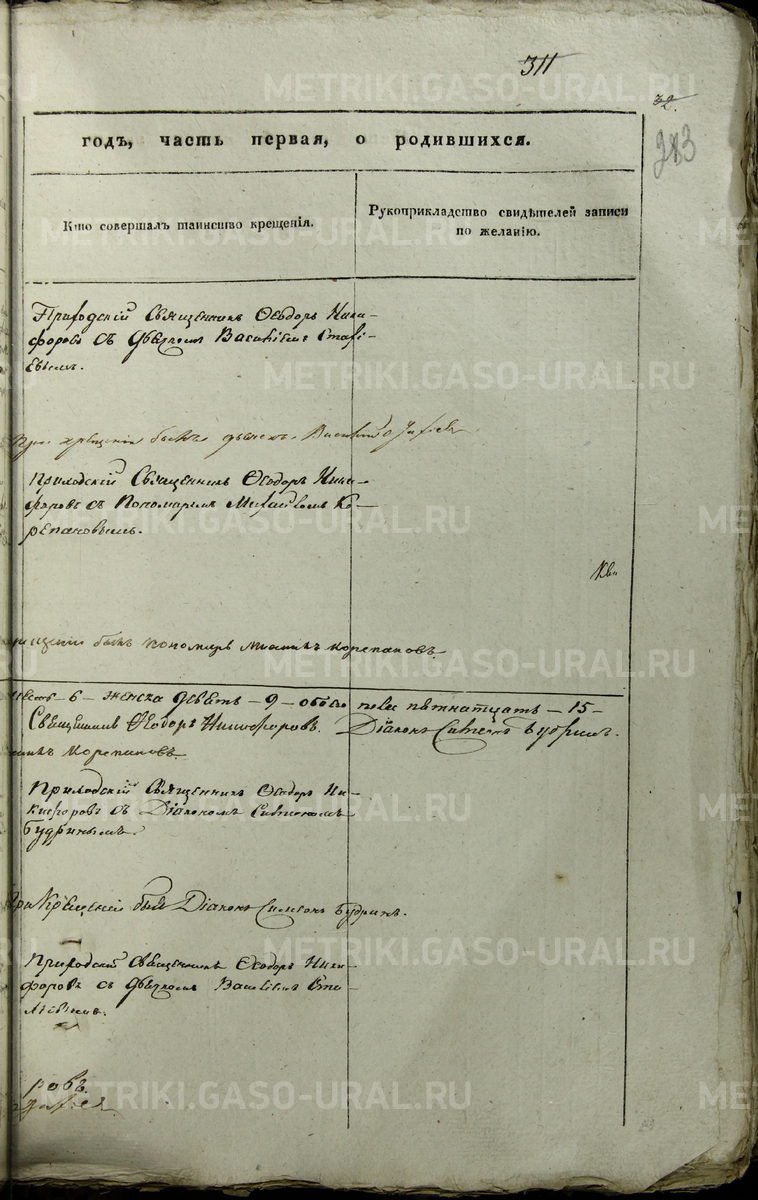 311
32.
283
METRIKI.GASO-URAL.RU
годъ, часть первая, о родившихся.
Кто совершалъ таинство крещенія.
Рукоприкладство свидѣтелей записи
по желанію.
Приходскій Священникъ Ѳеодоръ Ники-
форовъ съ дьячкомъ Василіемъ
евымъ.
При крещеніи былъ дьячекъ Василій
Приходскій Священникъ Ѳеодоръ Ники-
форовъ съ Пономаремъ Михаиломъ Ко-
репановымъ.
былъ пономарь Корепановъ
6 – женска девять – 9 – обоего пола пятнатцать – 15 –
Священникъ Ѳеодоръ Никифоровъ. Діаконъ Симеонъ Будринъ.
Корепановъ.
Приходскій Священникъ Ѳеодоръ Ни-
кифоровъ съ Діакономъ Симеономъ
Будринымъ.
При Крещеніи былъ Діаконъ Симеонъ Будринъ.
Приходскій Священникъ Ѳеодоръ Ники-
форовъ съ дьячкомъ Василіемъ
ровъ.